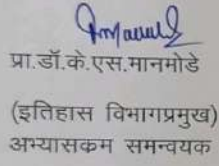 प्रा.डॉ.के.एस.मानमोडे
(इतिहास विभागप्रमुख)
अभ्यासकम समन्वयक